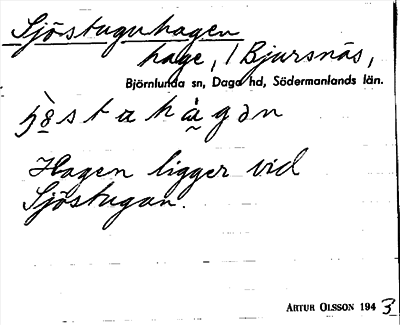 Sjöstuguhagen
hage, / Bjursnäs,
Björnlunda sn, Daga hd, Södermanlands län.
Hagen ligger vid
Sjöstugan.
ARTUR OLSSON 1943